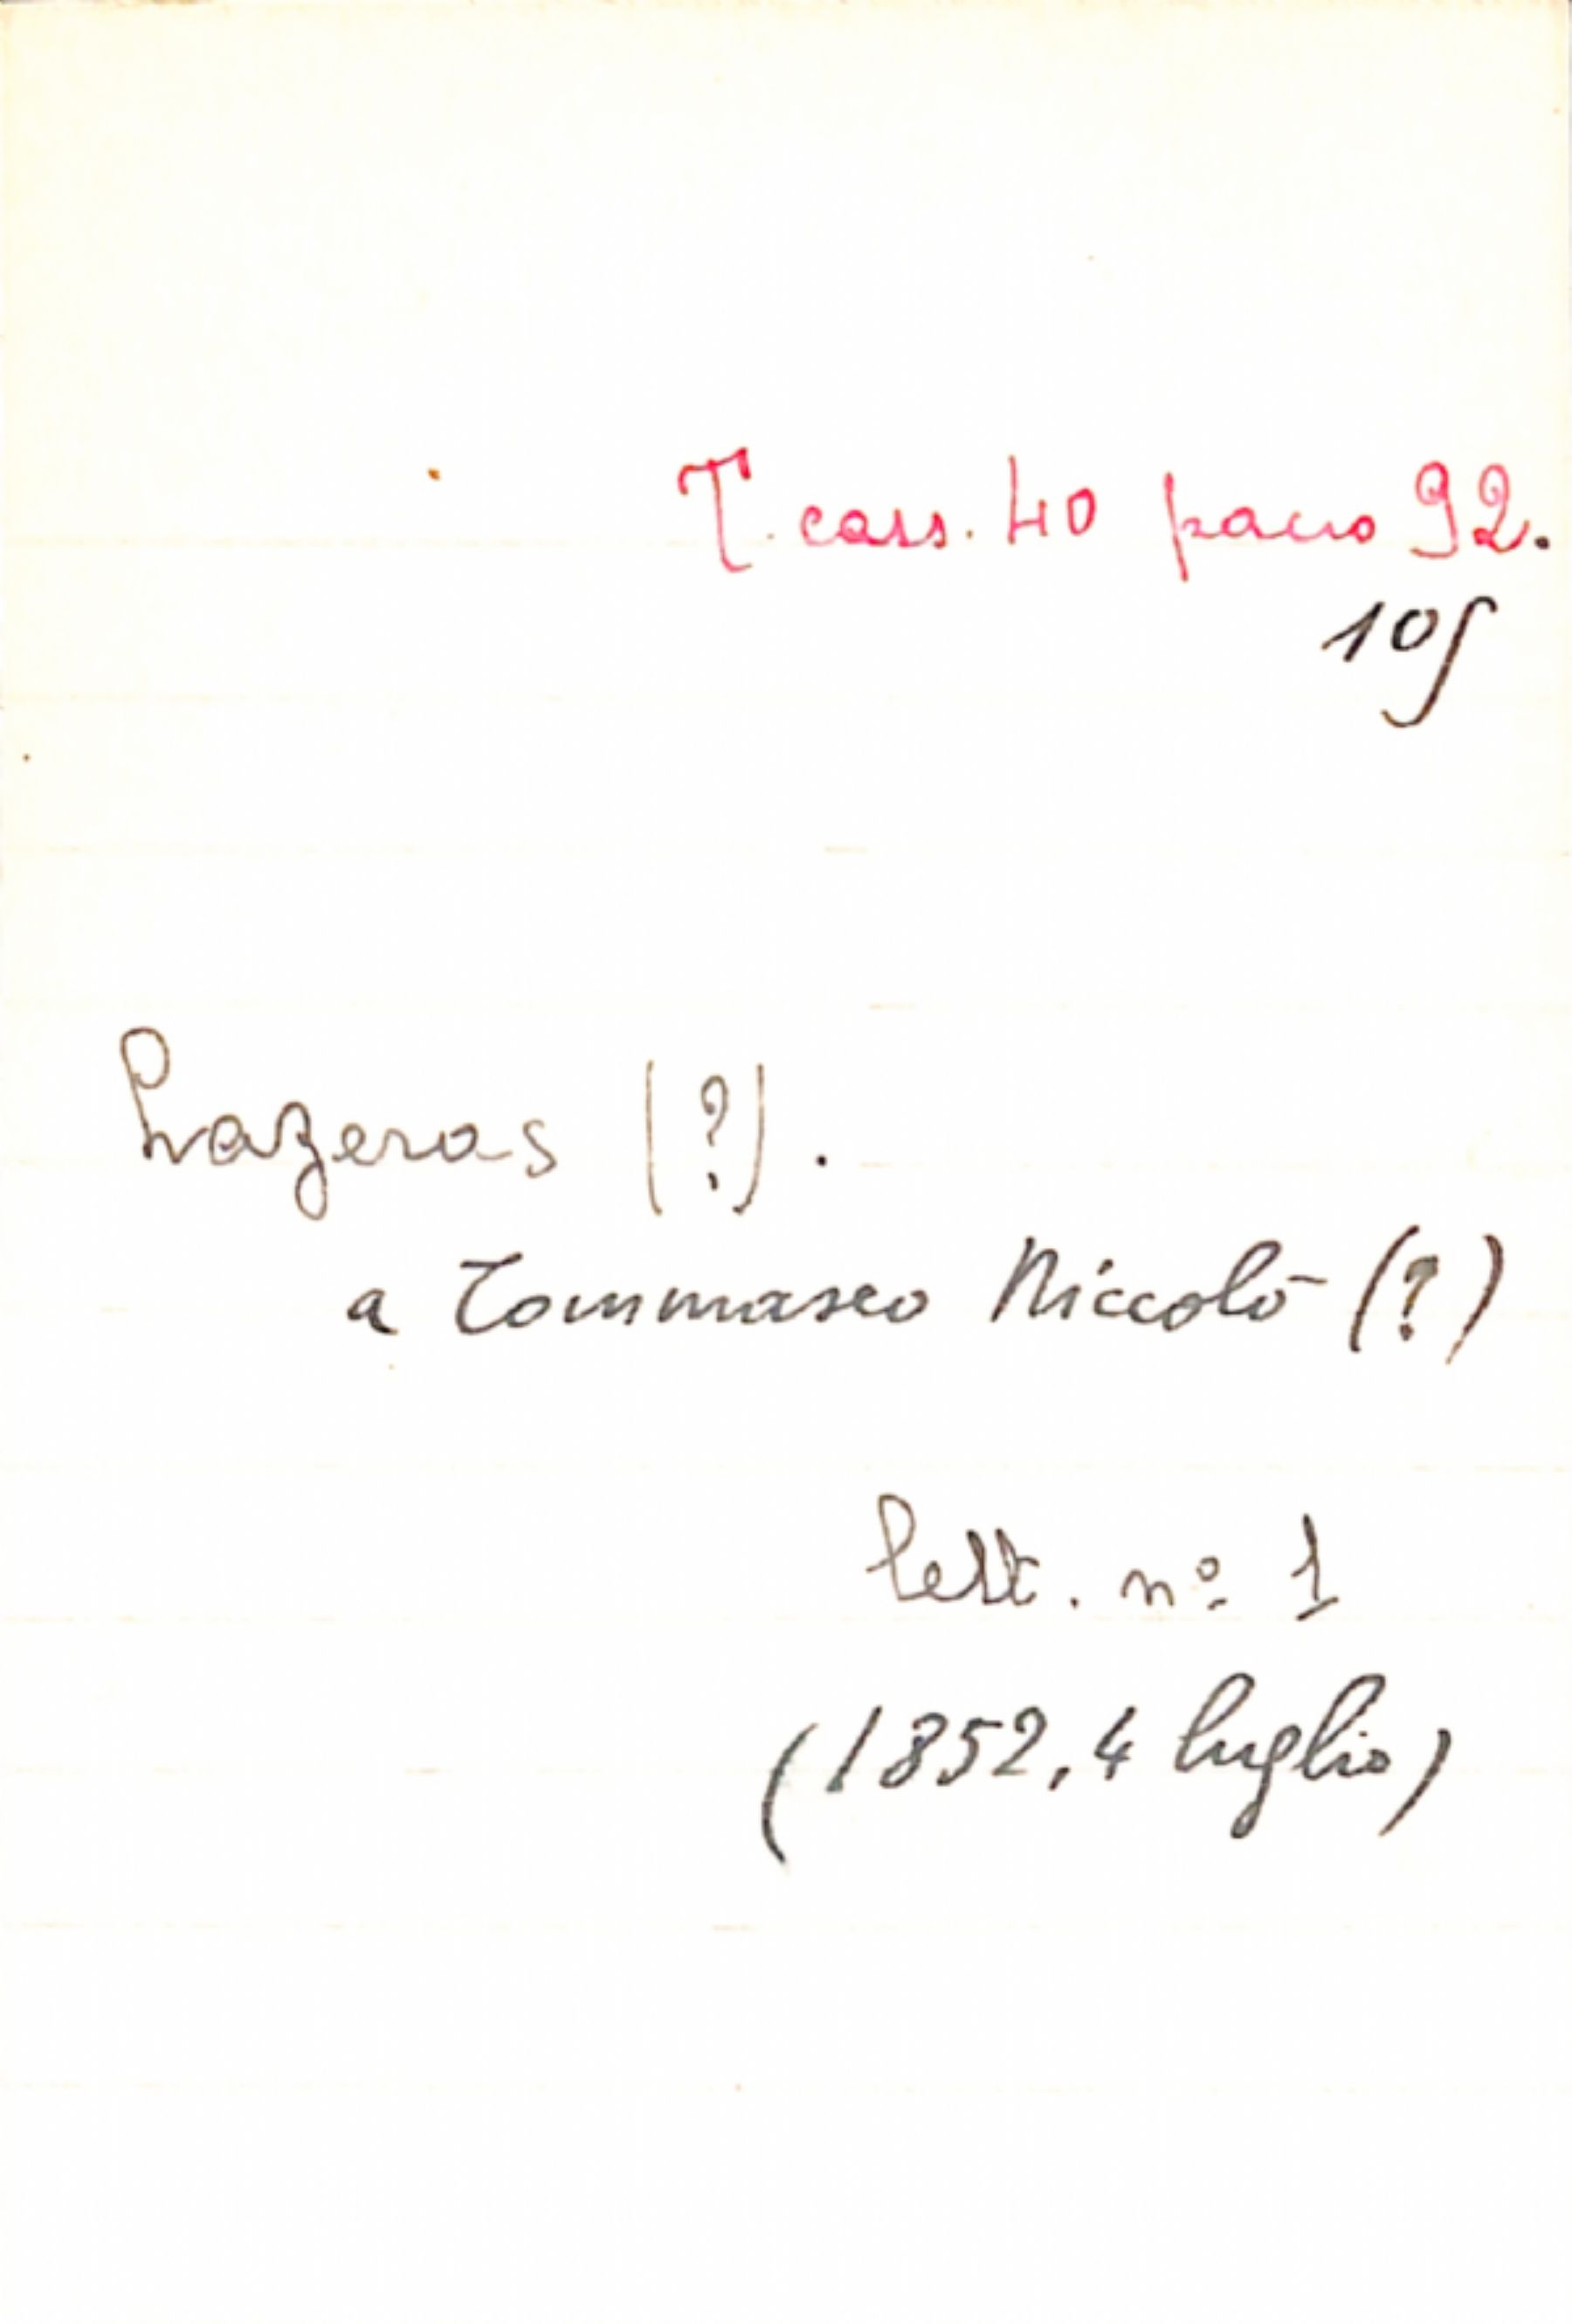 T. cass. 40 pacco 92.
105
Lazeras (?).
a Tommaseo Niccolò (?)
lett. nº 1
(1852, 4 luglio)